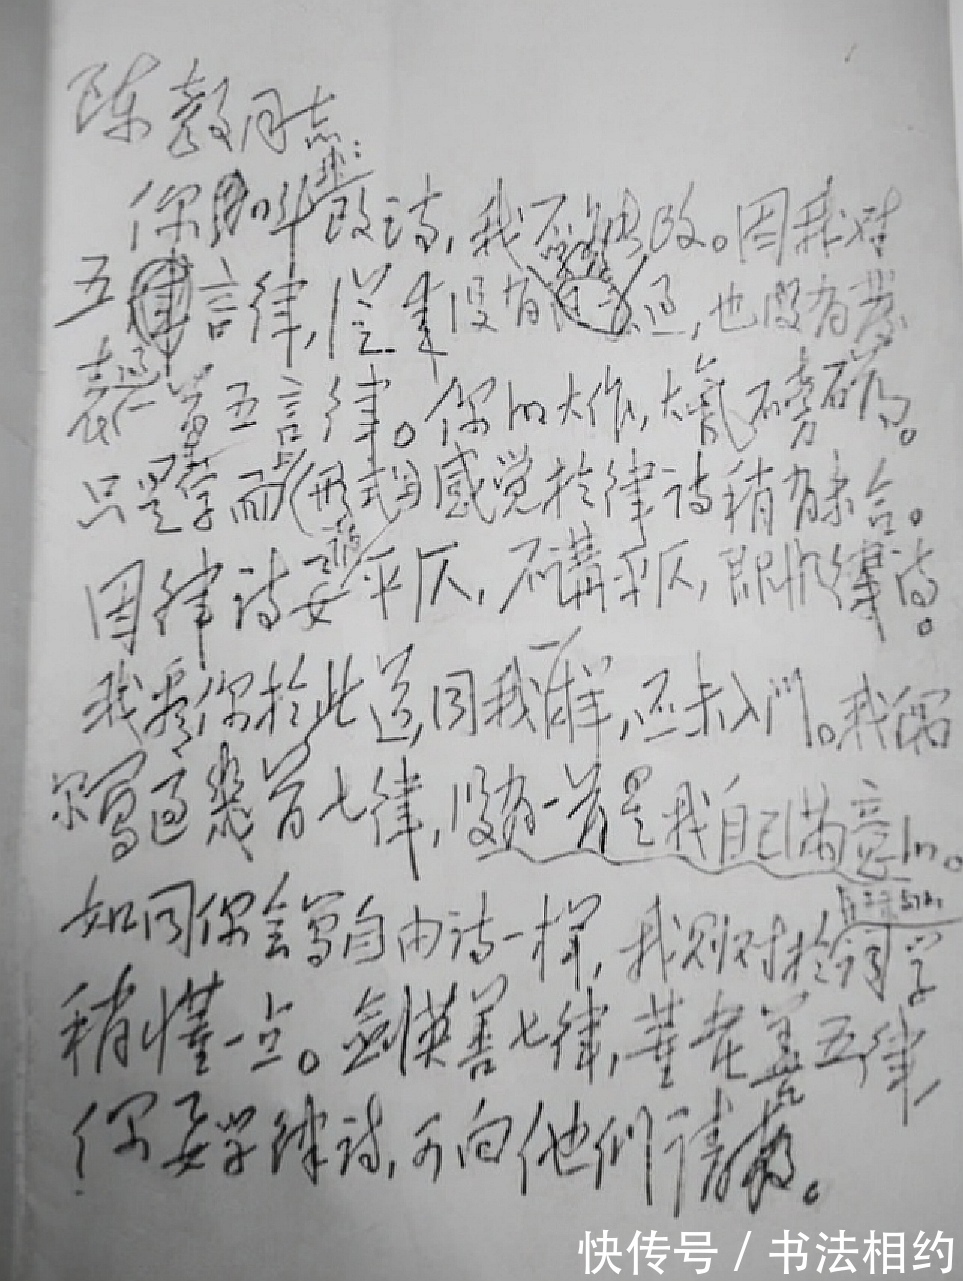 陈毅同志:
你叫我改诗,我不能改。因我对
五言律,从来没有学习过,也没有发
表过一首五言律。你的大作,大气磅礴。
只是在字面上(形式上)感觉于律诗稍有未合。
因律诗要讲平仄,不讲平仄,即非律诗。
我看你于此道,同我一样,还未入门。我偶
尔写过几首七律,没有一首是我自己满意的。
如同你会写自由诗一样,我则对于长短句的词学
稍懂一点。剑英善七律,董老善五律,
你要学律诗,可向他们请教。
快传号 / 书法相约